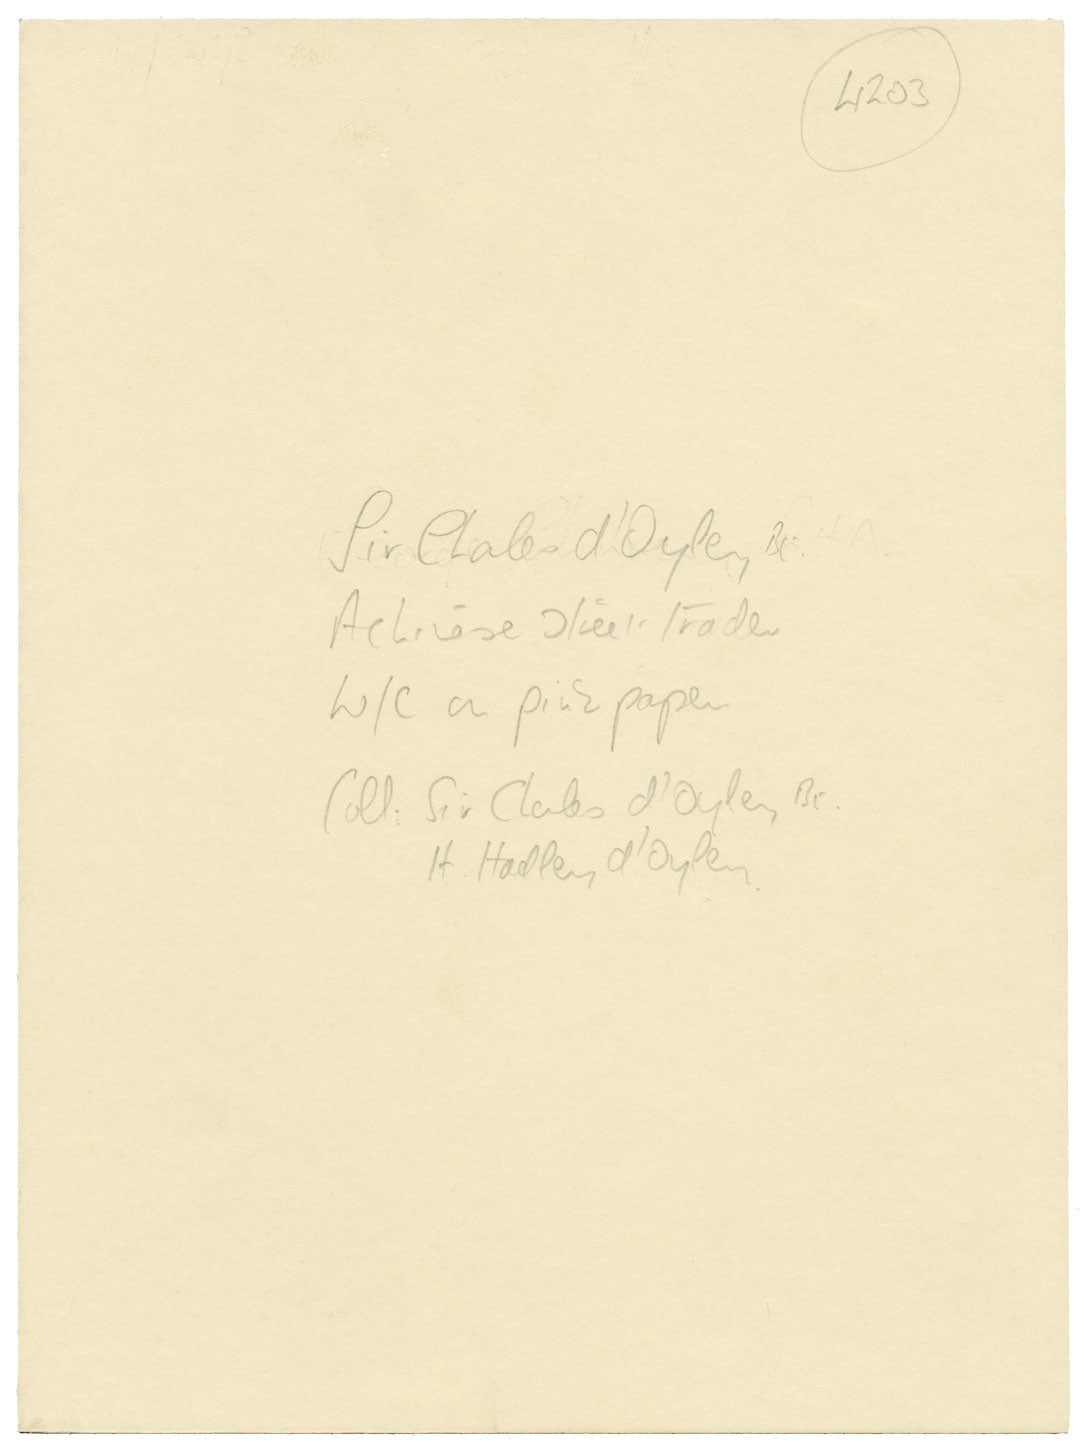 4203
Sir Charles d'Oyley, Bt.
A chinese street trader
W/C on pink paper
Coll: Sir Charles d'Oyley, Bt.
H. Hadley d'Oyley.